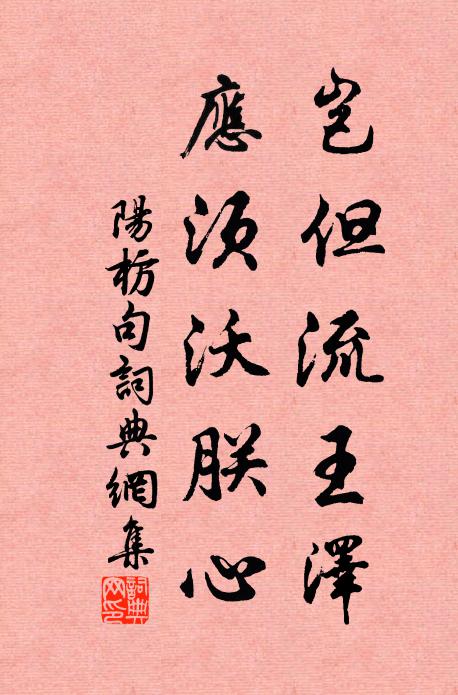 豈但流王澤
應須沃朕心
陽枋句詞典網集
詞典
网印